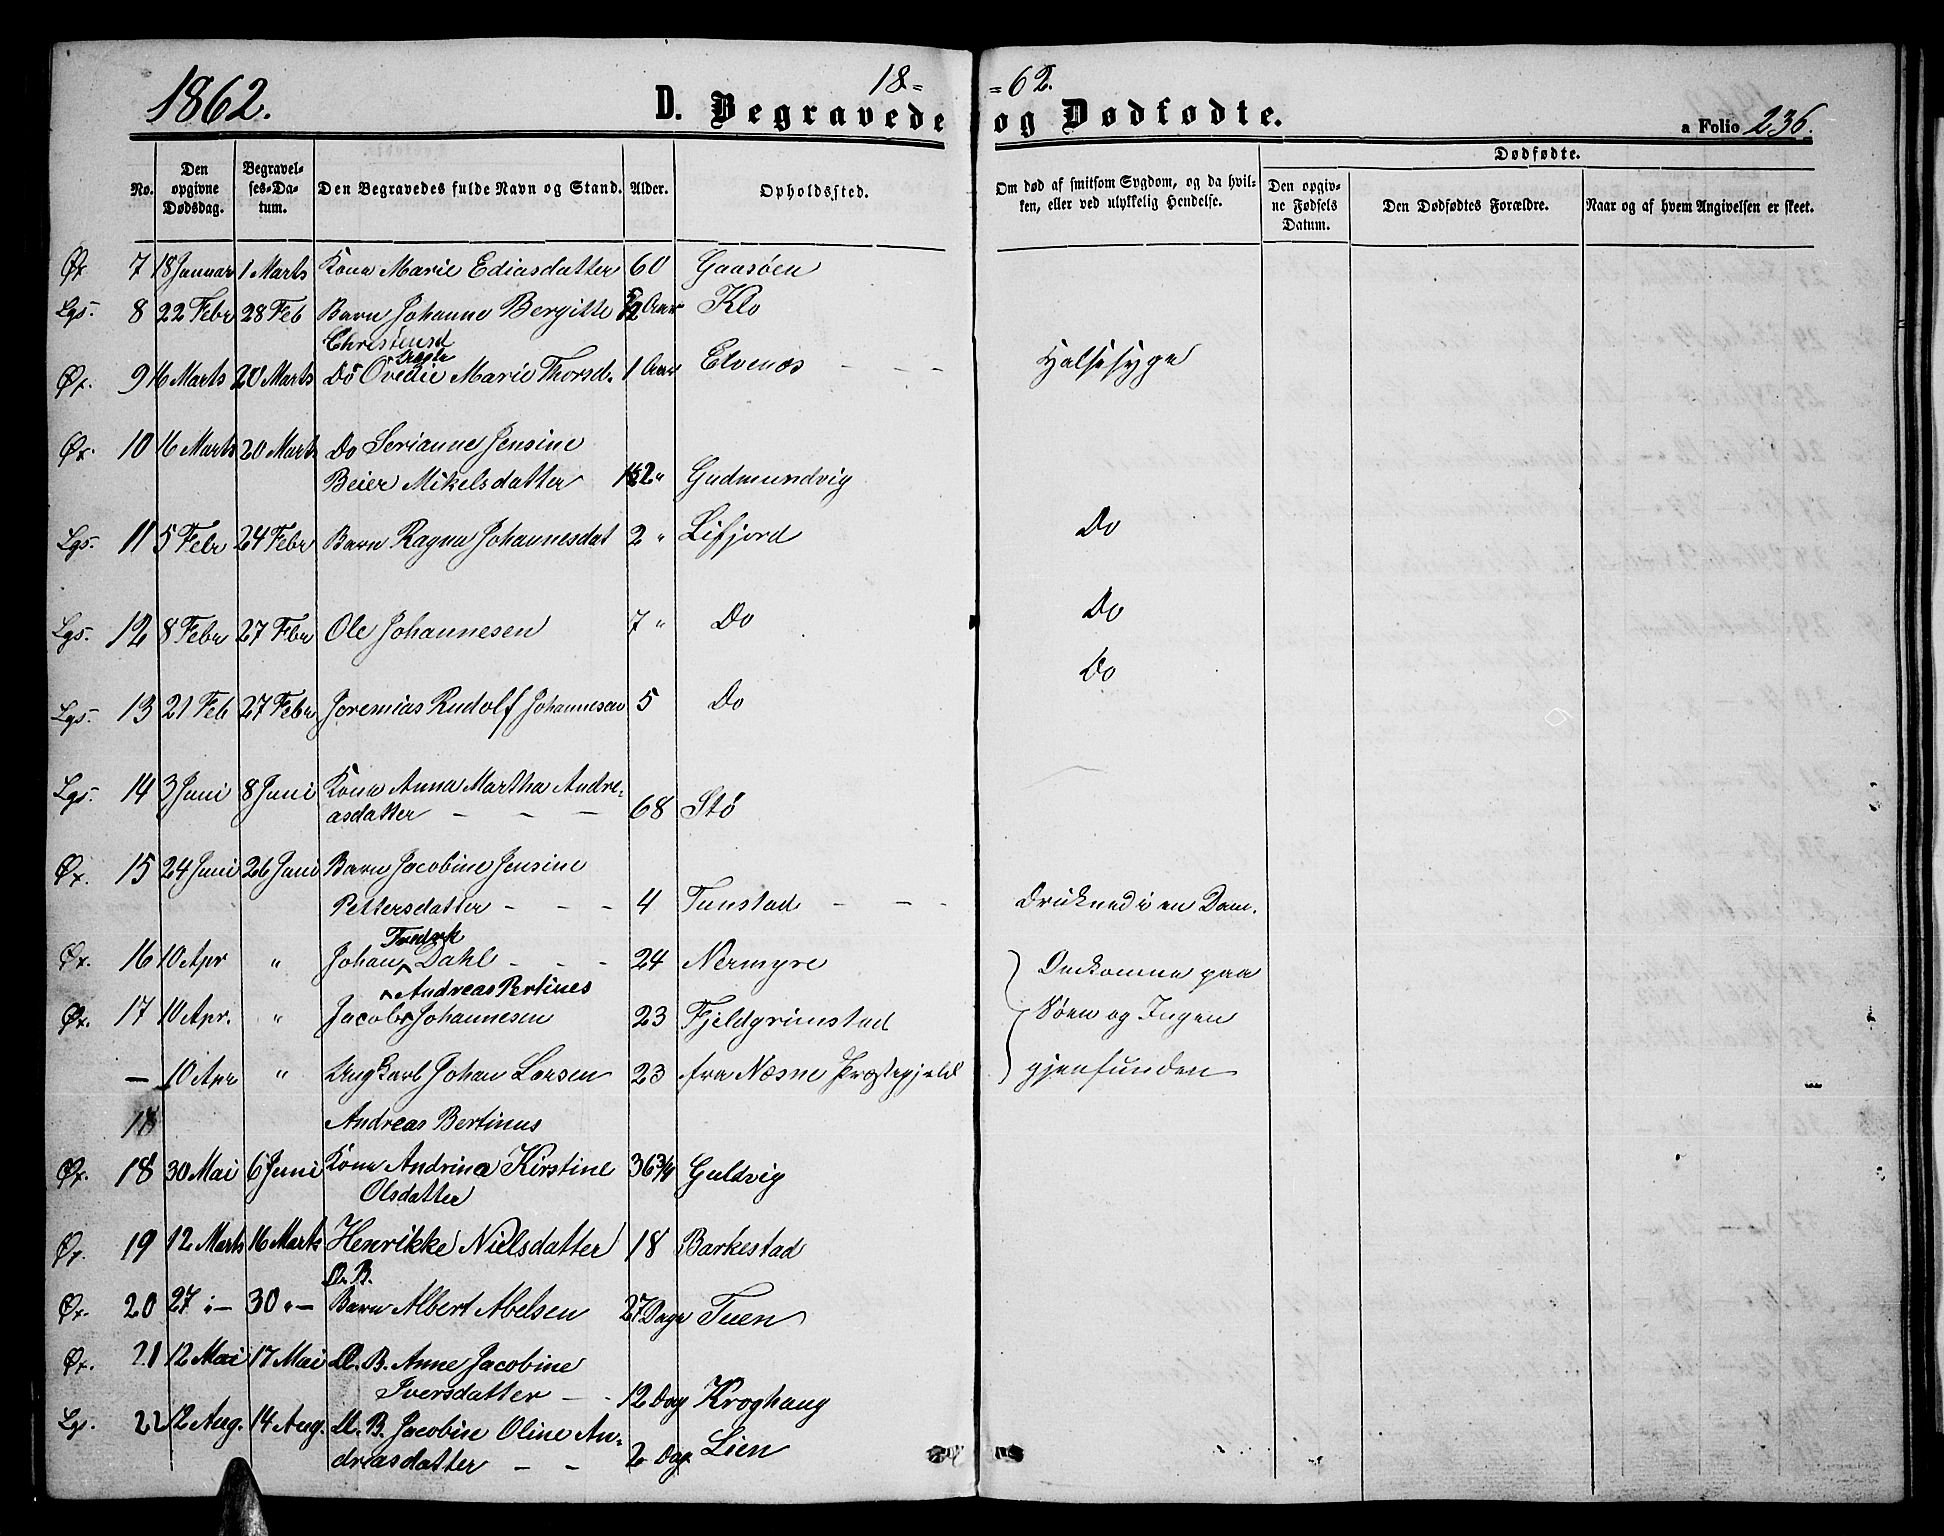 1862.
18=
=62.
D. Begravede
og Dødfødte.
a Folio 236.
No.
Den opgivne Dødsdag.
Begravelses-Datum.
Den Begravedes fulde Navn og Stand.
Alder.
Opholdssted.
Om død af smitsom Sygdom, og da hvilken, eller ved ulykkelig Hendelse.
Dødfødte.
Den opgivne Fødsels Datum.
Den Dødfødtes Forældre.
Naar og af hvem Angivelsen er skeet.
Øx 7 18 Januar 1 Marts Kone Marie Ediasdatter 60 Gaasøen
Lgs. 8 22 Febr 28 Feb Barn Johanne Bergitte 1/2 Aar Klo
Christensd
Øx. 9 16 Marts 20 Marts Do Ovedie Marie Thorsd. 1 Aar Elvenæs - - - Halssyge
Øx. 10 16 Marts 20 Marts Do Serianne Jensine
Beier Mikelsdatter 1 1/2 " Gudmundvig
Lgs. 11 5 Febr 24 Febr Barn Ragna Johannesdat 2 " Lifjord Do
Lgs. 12 8 Febr 27 Fbr Ole Johannesen 7 " Do Do
Do
Lgs. 13 21 Feb 27 Febr Jeremias Rudolf Johannesen 5 Do
Lgs. 14 3 Juni 8 Juni Kone Anna Martha Andre-
asdatter - - - 68 Stø
Øx. 15 24 Juni 26 Juni Barn Jacobine Jensine
Pettersdatter - - - 4 Tunstad - - - Druknede i en Dam.
Fredrek
Øx. 16 10 Apr " Johan Dahl - - - 24 Nermyre Omkomne paa
Andreas Bertines
Øx. 17 10 Apr. " Jacob Johannesen 23 Fjeldgrimstad Søen og Ingen
— 10 Apr " Ungkarl Johan Larsen 23 fra Næsne Præstegjeld gjenfunden
18 Andreas Bertinus
Øx. 18 30 Mai 6 Juni Kone Andrina Kirstine 36 3/4 Guldvig
Olsdatter
Øx. 19 12 Marts 16 Marts Henrikke Nielsdatter 18 Barkestad
Øx. 20 27 " — 30 " — Barn Albert Abelsen 27 Dage Tuen
Øx. 21 12 Mai 17 Mai U. B. Anne Jacobine
Iversdatter - - 12 Dag Kroghaug
Lgs. 22 12 Aug. 14 Aug. U. B. Jacobine Oline An-
dreasdatter - - 2 Dag Lien